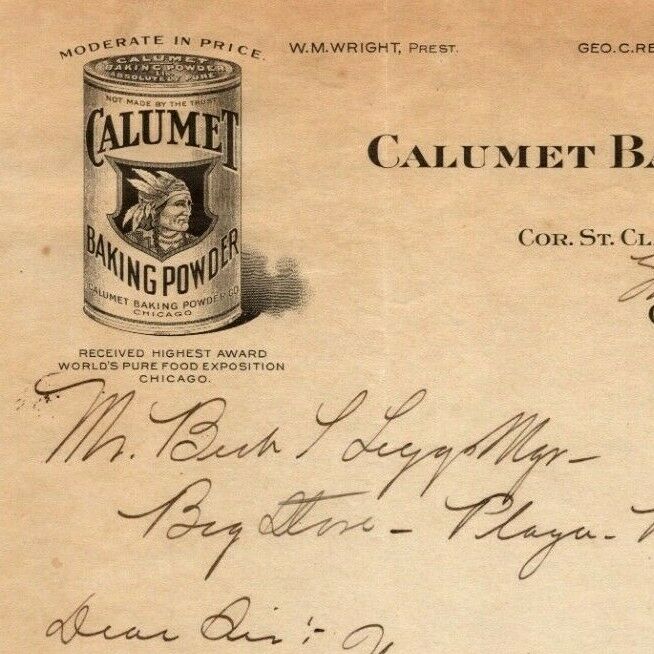 MODERATE IN PRICE.
W.M.WRIGHT, PREST.
GEO.C.RE
CALUMET
BAKING POWDER
ABSOLUTELY PURE
NOT MADE BY THE TRUST
CALUMET
BAKING POWDER
CALUMET BAKING POWDER CO
CHICAGO
CALUMET BA
COR. ST. CL
RECEIVED HIGHEST AWARD
WORLD'S PURE FOOD EXPOSITION
CHICAGO.
Mr. Leggs Mgr-
Big Store - Playa -
Dear Sir:-